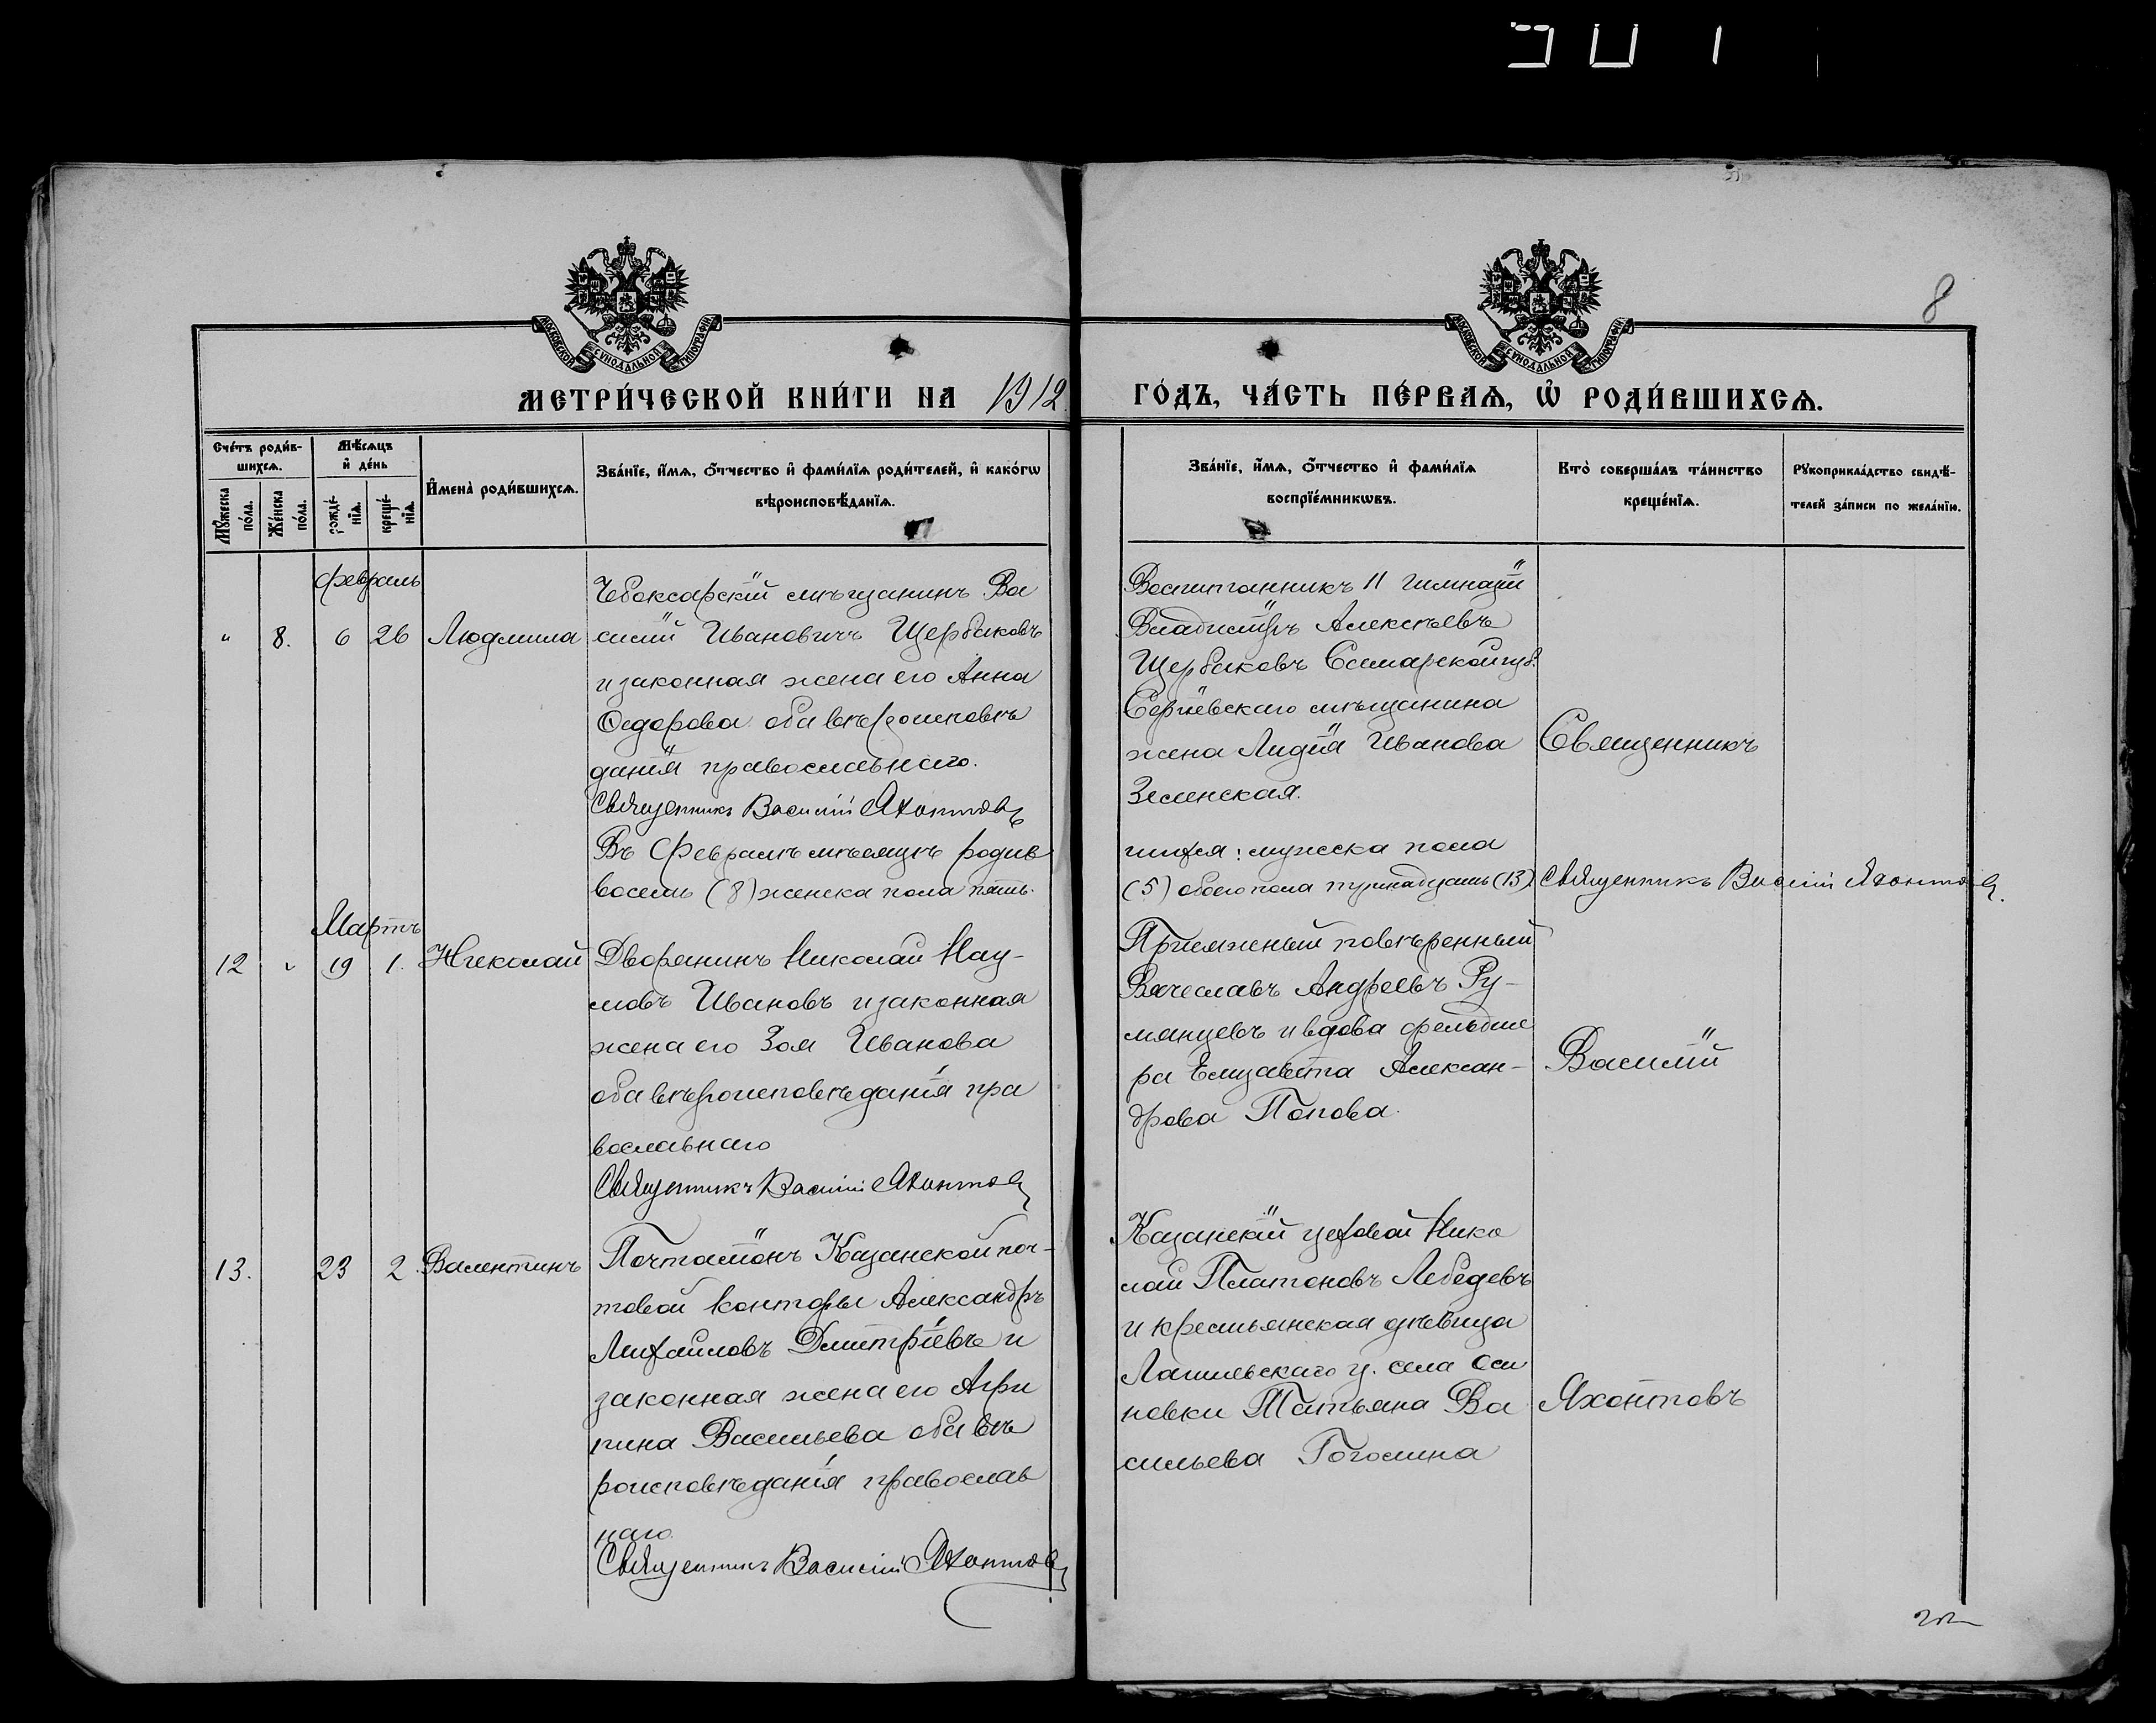 8
МОСКОВСКОЙ СѴНОДАЛЬНОЙ ТИПОГРАФІИ
МОСКОВСКОЙ СѴНОДАЛЬНОЙ ТИПОГРАФІИ
МЕТРИ́ЧЕСКОЙ КНИ́ГИ НА 1912. ГО́ДЪ, ЧА́СТЬ ПЕ́РВАѦ, Ѡ҆ РОДИ́ВШИХСѦ.
Сче́тъ роди́в-
шихсѧ.
Мꙋ́жеска по́ла.
Же́нска по́ла.
Мѣ́сѧцъ
и҆ де́нь
рожде́-нїѧ.
креще́-нїѧ.
И҆мена̀ роди́вшихсѧ.
Зва́нїе, и҆́мѧ, ѻ҆́тчество и҆ фами́лїѧ роди́телей, и҆ како́гѡ
вѣроисповѣ́данїѧ.
Зва́нїе, и҆́мѧ, ѻ҆́тчество и҆ фами́лїѧ
воспрїе́мникѡвъ.
Кто̀ соверша́лъ та́инство
креще́нїѧ.
Рꙋкоприкла́дство свидѣ́-
телей за́писи по жела́нїю.
Февраль
" 8. 6 26 Людмила
Чебоксарскій мѣщанинъ Ва
силій Ивановичъ Щербаковъ
и законная жена его Анна
Ѳедорова оба вѣроисповѣ
данія православнаго.
Священникъ Василій Яхонтовъ
Воспитанникъ II гимназіи
Владиміръ Алексѣевъ
Щербаковъ Самарской губ.
Сергіевскаго мѣщанина
жена Лидія Иванова
Зеленская.
Въ Февралѣ мѣсяцѣ родив
шихся: мужеска пола
восемь (8) женска пола пять
(5) обоего пола тринадцать (13). Священникъ Василій Яхонтовъ.
Мартъ
12 " 19 1. Николай
Дворянинъ Николай Нау-
мовъ Ивановъ и законная
жена его Зоя Иванова
оба вѣроисповѣданія пра
вославнаго
Священникъ Василій Яхонтовъ
Присяжный повѣренный
Вячеславъ Андреевъ Ру-
мянцевъ и вдова фельдше
ра Елизавета Алексан-
дрова Попова.
13. 23 2. Валентинъ
Почталіонъ Казанской поч-
товой конторы Александръ
Михайловъ Дмитріевъ и
законная жена его Агри
пина Васильева оба вѣ
роисповѣданія православ
наго.
Священникъ Василій Яхонтовъ
Казанскій цеховой Нико
лай Платоновъ Лебедевъ
и крестьянская дѣвица
Лаишевскаго у. села Оси
новки Татьяна Ва
сильева Гоголина
Священникъ
Василій
Яхонтовъ